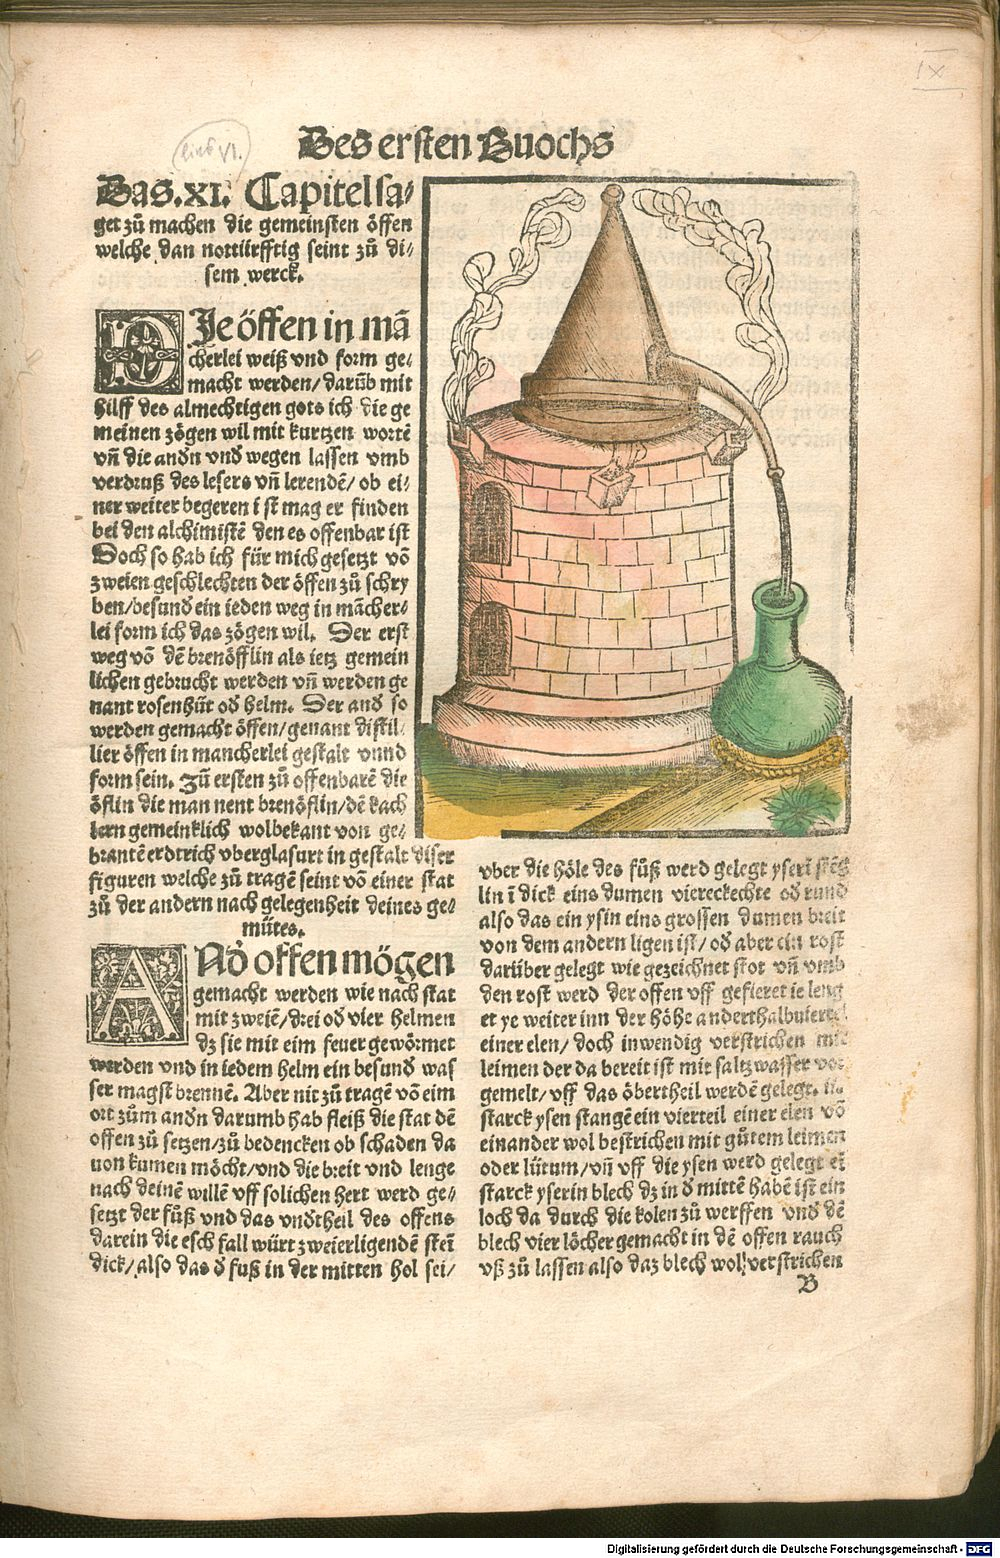 IX
Des ersten Buochs
Das .XI. Capitel sa⸗
get zů machen die gemeinsten öffen
welche dan nottürfftig seint zů di⸗
sem werck.
DIe öffen in mā
cherlei weiß vnd form ge⸗
macht werden/ darūb mit
hilff des almechtigen gots ich die ge
meinen zögen wil mit kurtzen wortē
vñ die andn vnd wegen lassen vmb
verdruß des lesers vñ lerendē/ ob ei⸗
ner weiter begeren i st mag er finden
bei den alchimistē den es offenbar ist
Doch so hab ich für mich gesetzt vō
zweien geschlechten der öffen zů schry
ben/ besund ein ieden weg in mācher⸗
lei form ich das zögen wil. Der erst
weg vō dē brenöfflin als ietz gemein
lichen gebrucht werden vñ werden ge
nant rosenhüt od helm. Der and so
werden gemacht öffen/ genant distil⸗
lier öffen in mancherlei gestalt vnnd
form sein. Zů ersten zů offenbarē die
öflin die man nent brenöflin/ dē kach
lern gemeinklich wolbekant von ge⸗
brantē erdtrich vberglasurt in gestalt diser
figuren welche zů tragē seint vō einer stat
zů der andern nach gelegenheit deines ge⸗
mütes.
ANd offen mögen
gemacht werden wie nach stat
mit zweiē/ drei od vier helmen
dz sie mit eim feuer gewörmet
werden vnd in iedem helm ein besund was
ser magst brennē. Aber nit zů tragē vō eim
ort zům andn darumb hab fleiß die stat dē
offen zů setzen/ zů bedencken ob schaden da
uon kumen möcht/ vnd die breit vnd lenge
nach deinē willē vff solichen hert werd ge⸗
setzt der fůß vnd das vndtheil des offens
darein die esch fall würt zweierligendē steī
dick/ also das d fuß in der mitten hol sei/
vber die höle des fůß werd gelegt yserī stēg
lin ī dick eins dumen viereckechte od rund
also das ein ysin eins grossen dumen breit
von dem andern ligen ist/ od aber ein rost
darüber gelegt wie gezeichnet stot vñ vmb
den rost werd der offen vff gefieret ie leng
et ye weiter inn der höhe anderthalbuiertel
einer elen/ doch inwendig verstrichen mit
leimen der da bereit ist mit saltzwasser vor
gemelt/ vff das öbertheil werdē gelegt. iii.
starck ysen stangē ein vierteil einer elen vō
einander wol bestrichen mit gůtem leimen
oder lütum/ vñ vff die ysen werd gelegt eī
starck yserin blech dz in d mittē habē ist ein
loch da durch die kolen zů werffen vnd dē
blech vier löcher gemacht in dē offen rauch
vß zů lassen also daz blech wol verstrichen
B
Digitalisierung gefördert durch die Deutsche Forschungsgemeinschaft - DFG